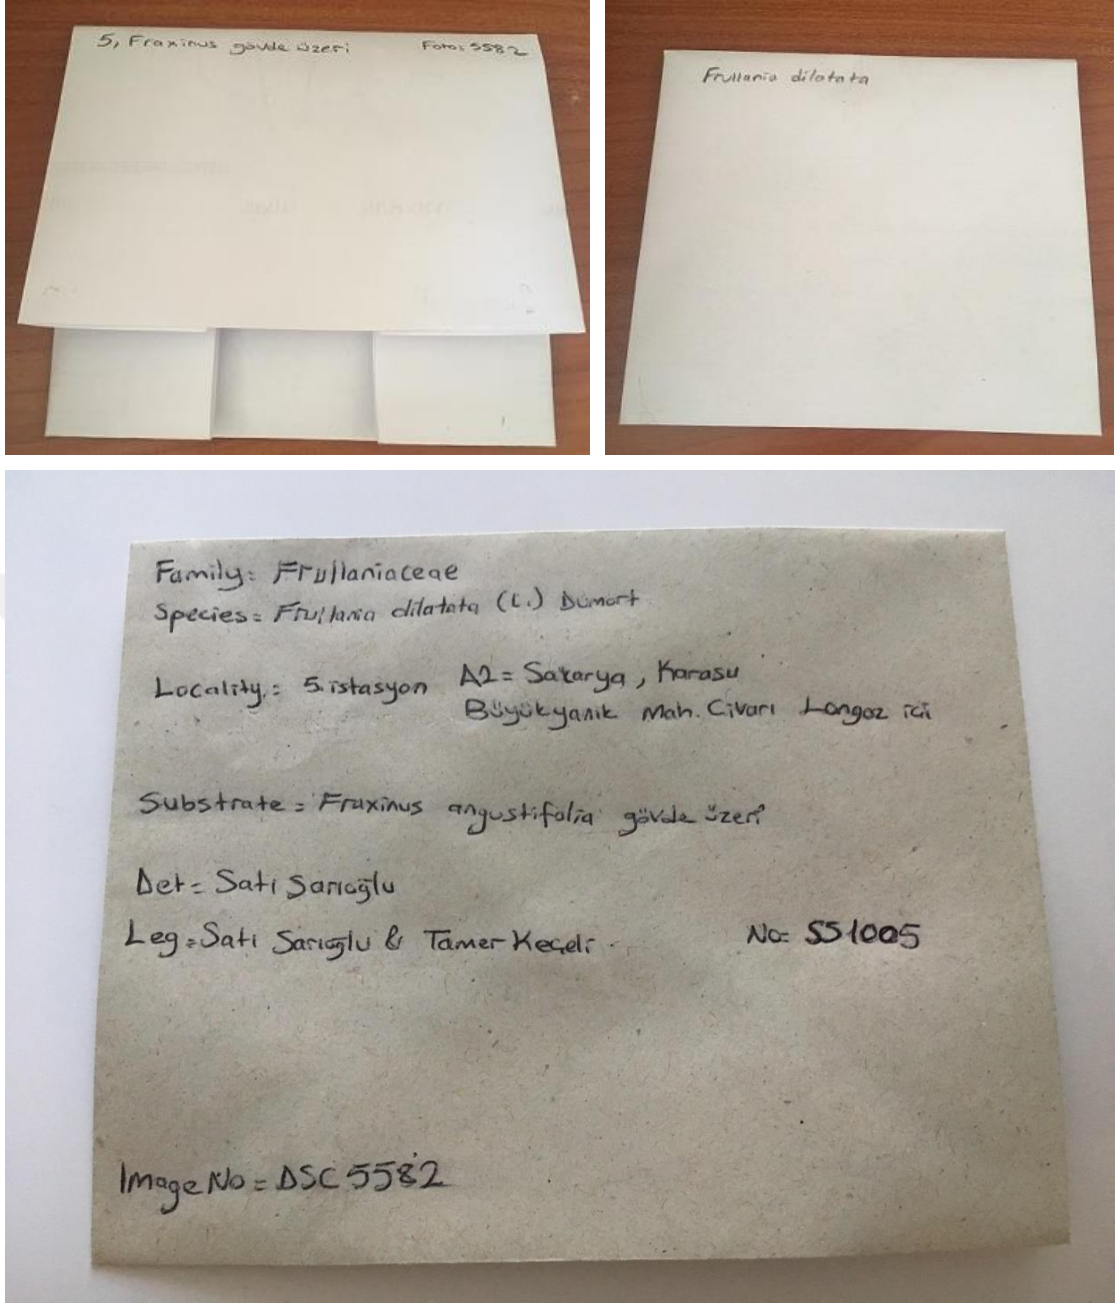 5, Fraxinus gövde üzeri Foto: 5582
Frullania dilatata
Family: Frullaniaceae
Species= Frullania dilatata (L.) Dumort
Locality: 5. istasyon A2= Sakarya, Karasu
Büyükyanık Mah. Civarı Longoz içi
Substrate= Fraxinus angustifolia gövde üzeri
Det= Satı Sarıoğlu
Leg=Satı Sarıoğlu & Tamer Keçeli No= SS1005
Image No= DSC 5582